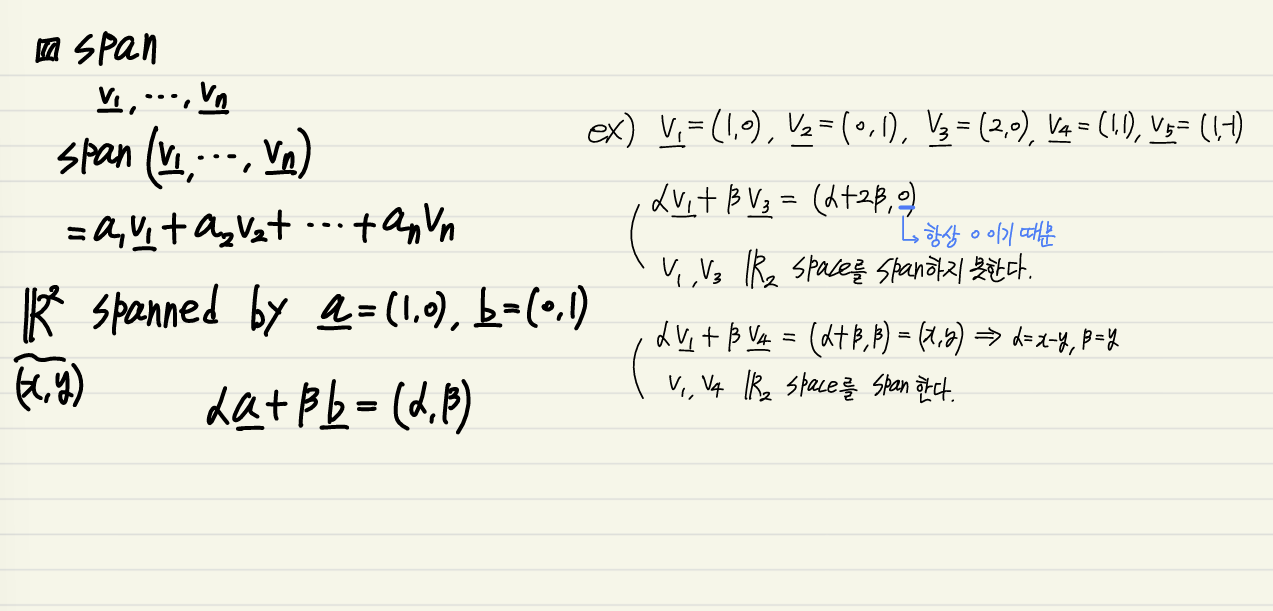 ▨ span
v₁, ⋯, vₙ
span(v₁, ⋯, vₙ)
= a₁v₁ + a₂v₂ + ⋯ + aₙvₙ
ℝ² spanned by a = (1,0), b = (0,1)
(x,y)
αa + βb = (α,β)
ex) v₁ = (1,0), v₂ = (0,1), v₃ = (2,0), v₄ = (1,1), v₅ = (1,-1)
αv₁ + βv₃ = (α+2β, 0)
↳ 항상 0 이기 때문
v₁, v₃ ℝ₂ space를 span하지 못한다.
αv₁ + βv₄ = (α+β, β) = (x,y) ⇒ α=x-y, β=y
v₁, v₄ ℝ₂ space를 span 한다.